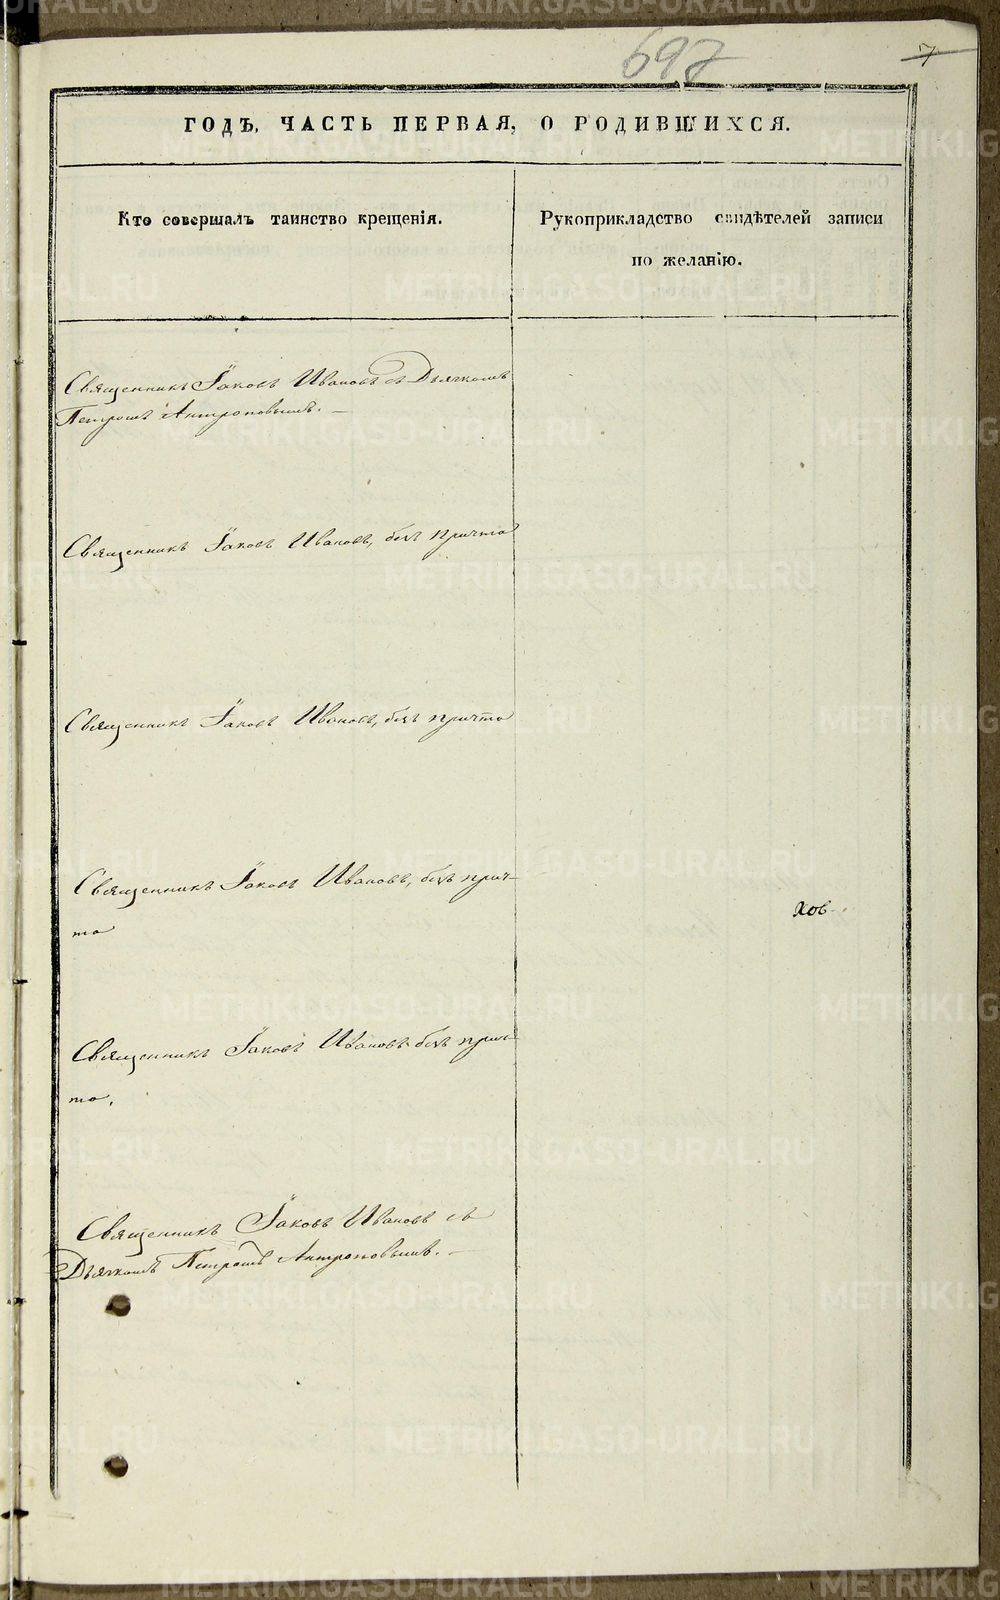 697
7
ГОДЪ, ЧАСТЬ ПЕРВАЯ, О РОДИВШИХСЯ.
Кто совершалъ таинство крещенія.
Рукоприкладство свидѣтелей записи
по желанію.
Священникъ Іаковъ Ивановъ съ Дьячкомъ
Петромъ Антроповымъ. —
Священникъ Іаковъ Ивановъ, безъ причта
Священникъ Іаковъ Ивановъ, безъ причта
Священникъ Іаковъ Ивановъ, безъ прич-
та
хов-
Священникъ Іаковъ Ивановъ безъ прич-
та.
Священникъ Іаковъ Ивановъ съ
Дьячкомъ Петромъ Антроповымъ. —
METRIKI.GASO-URAL.RU